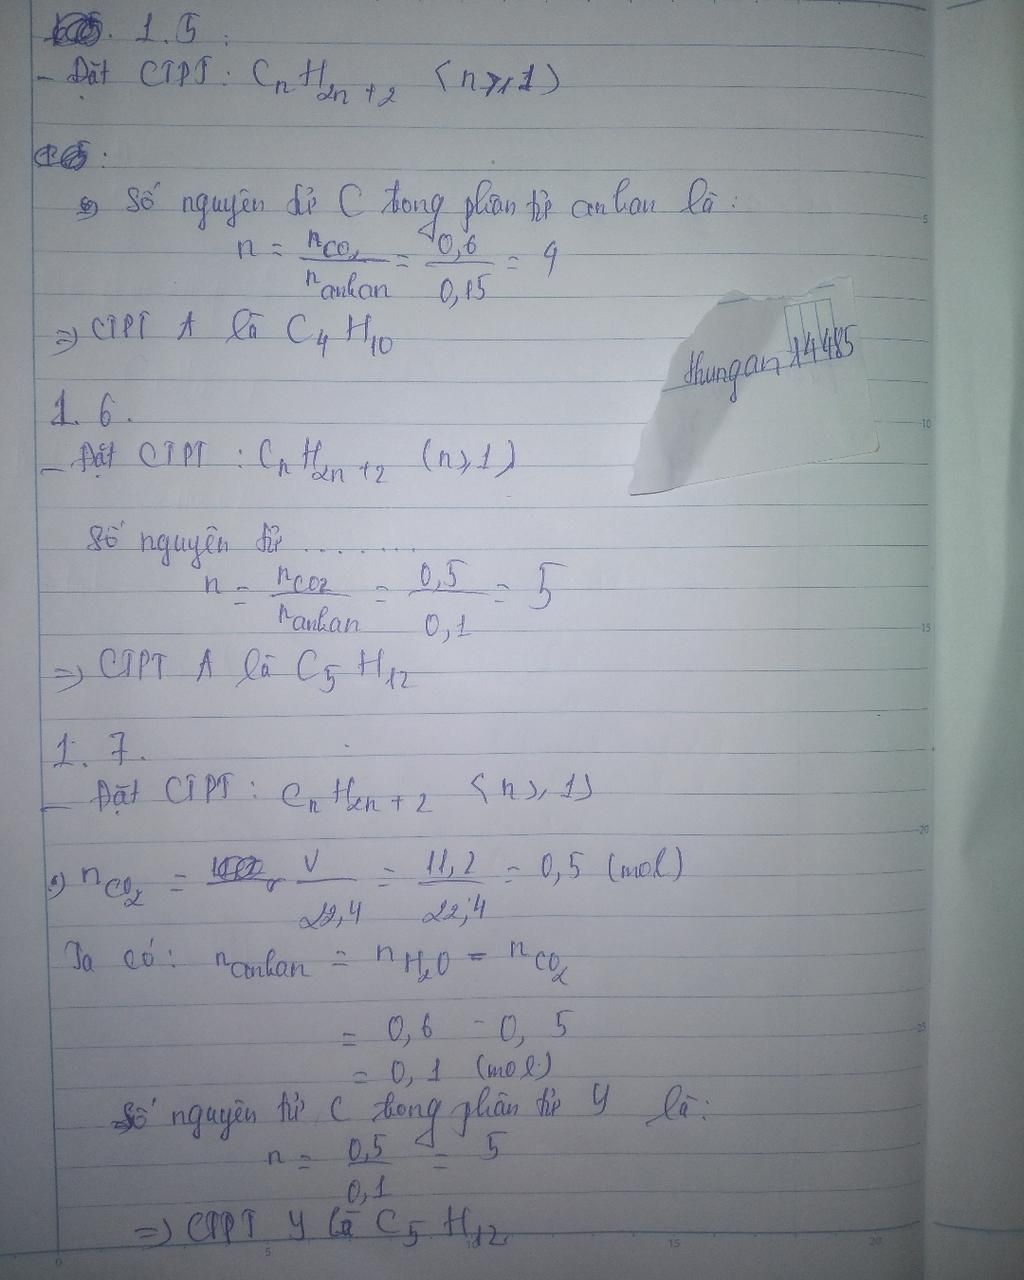 1.5:
- Đặt CTPT: CnH2n+2 (n≥1)
Số nguyên tử C trong phân tử ankan là:
n = nCO2 / nankan = 0,6 / 0,15 = 4
⇒ CTPT A là C4H10
thungan14485
1.6.
- Đặt CTPT: CnH2n+2 (n≥1)
Số nguyên tử ........
n = nCO2 / nankan = 0,5 / 0,1 = 5
⇒ CTPT A là C5H12
1.7.
- Đặt CTPT: CnH2n+2 (n≥1)
nCO2 = V / 22,4 = 11,2 / 22,4 = 0,5 (mol)
Ta có: nankan = nH2O = nCO2
= 0,6 - 0,5
= 0,1 (mol)
Số nguyên tử C trong phân tử Y là:
n = 0,5 / 0,1 = 5
⇒ CTPT Y là C5H12
0 5 10 15 20
5
10
15
20
25